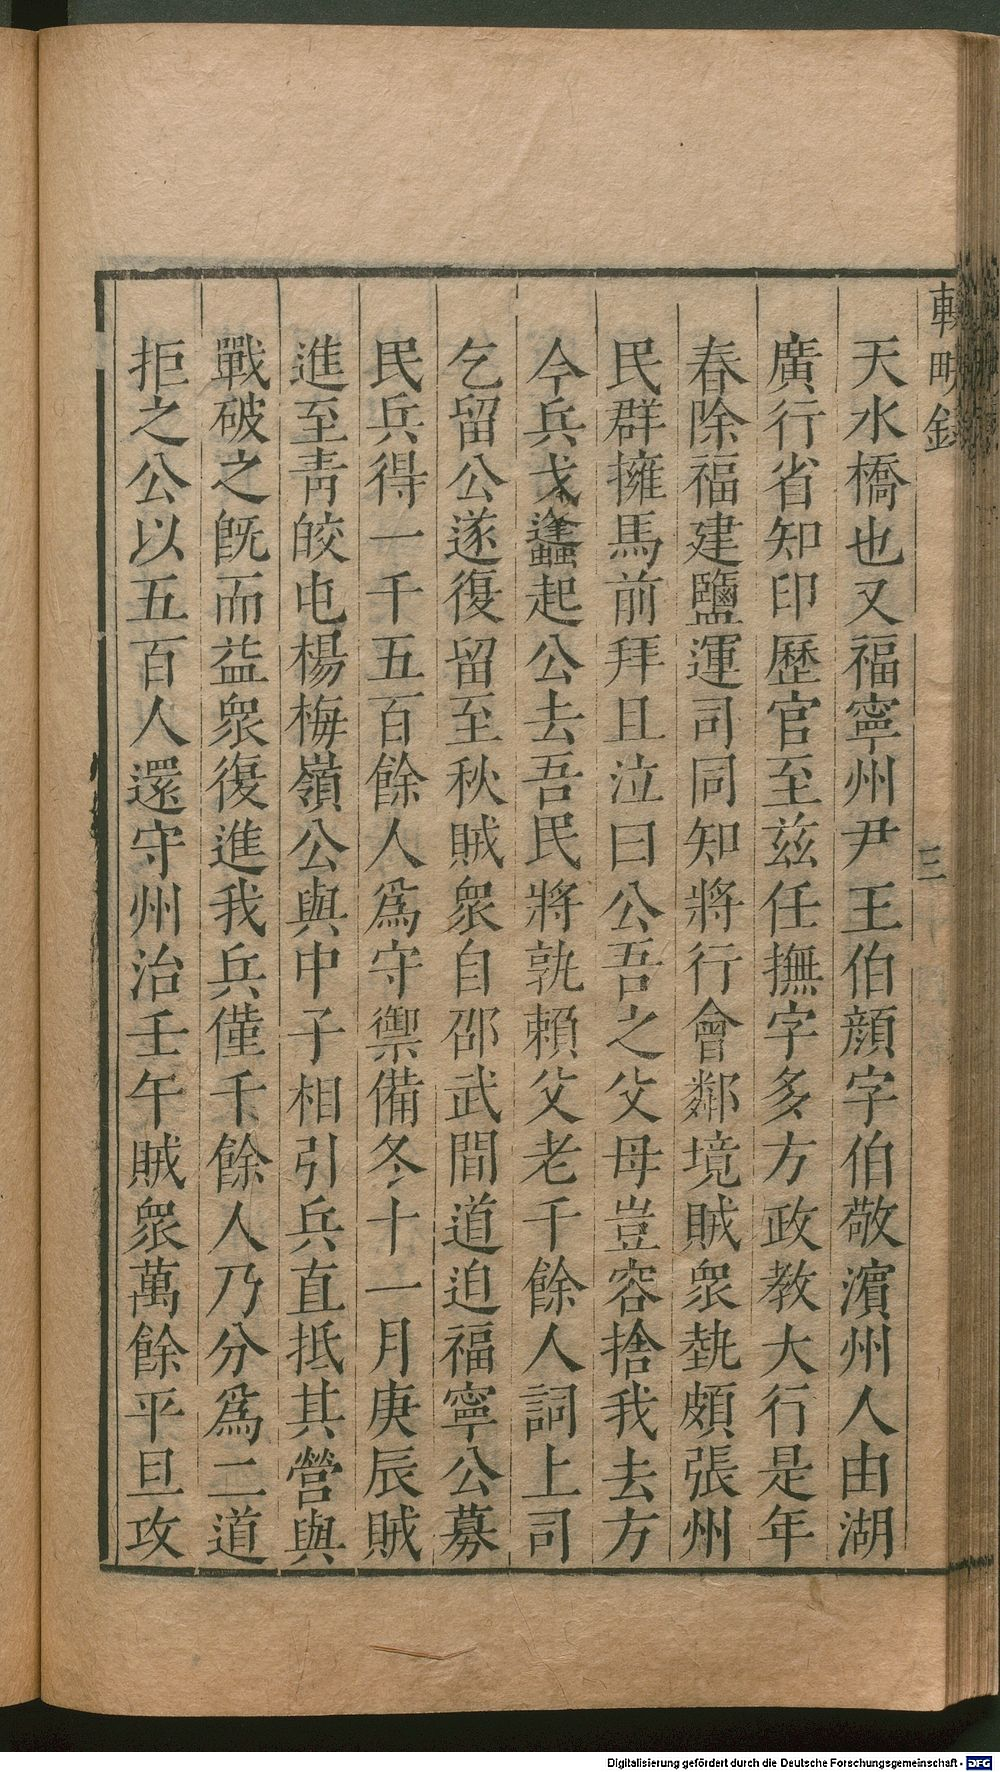 天水橋也又福寧州尹王伯顔字伯敬濵州人由湖
廣行省知印歷官至兹任撫字多方政教大行是年
春除福建鹽運司同知將行會鄰境賊衆埶頗張州
民群擁馬前拜且泣曰公吾之父母豈容捨我去方
今兵戈蠭起公去吾民將孰頼父老千餘人詞上司
乞留公遂復留至秋賊衆自邵武間道迫福寧公募
民兵得一千五百餘人爲守禦備冬十一月庚辰賊
進至靑皎屯楊梅嶺公與中子相引兵直抵其營與
戰破之旣而益衆復進我兵僅千餘人乃分爲二道
拒之公以五百人還守州治壬午賊衆萬餘平旦攻
三
Digitalisierung gefördert durch die Deutsche Forschungsgemeinschaft - DFG